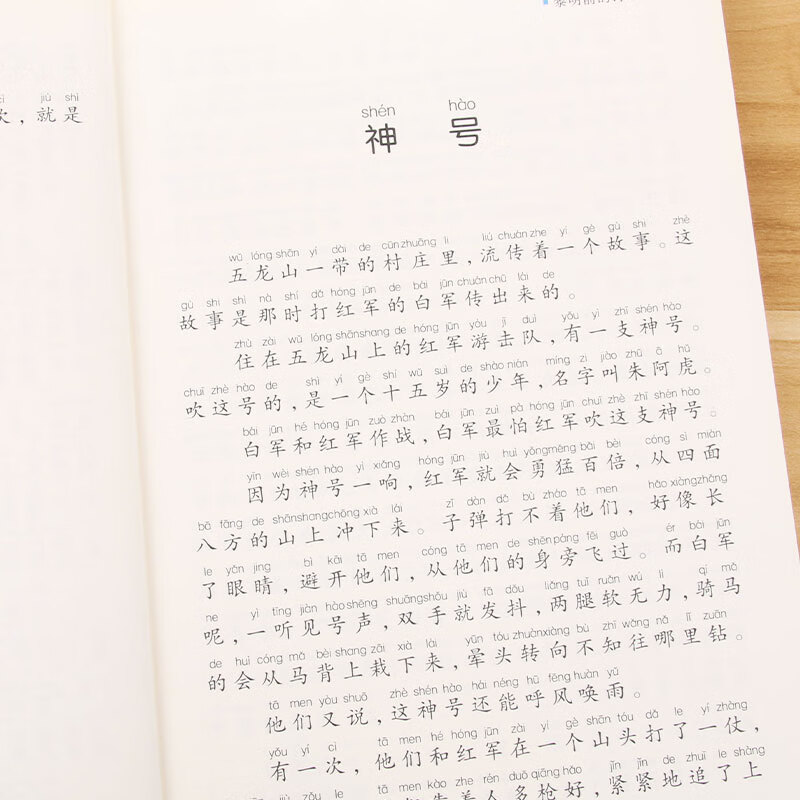 cì jiù shì
次，就是
shén hào
神号
wǔ lóng shān yí dài de cūn zhuāng li liú chuán zhe yí gè gù shi zhè
五龙山一带的村庄里，流传着一个故事。这
gù shi shì nà shí dǎ hóng jūn de bái jūn chuán chū lái de
故事是那时打红军的白军传出来的。
zhù zài wǔ lóng shān shang de hóng jūn yóu jī duì yǒu yì zhī shén hào
住在五龙山上的红军游击队，有一支神号。
chuī zhè hào de shì yí gè shí wǔ suì de shào nián míng zi jiào zhū ā hǔ
吹这号的，是一个十五岁的少年，名字叫朱阿虎。
bái jūn hé hóng jūn zuò zhàn bái jūn zuì pà hóng jūn chuī zhè zhī shén hào
白军和红军作战，白军最怕红军吹这支神号。
yīn wèi shén hào yì xiǎng hóng jūn jiù huì yǒng měng bǎi bèi cóng sì miàn
因为神号一响，红军就会勇猛百倍，从四面
bā fāng de shān shang chōng xià lái zǐ dàn dǎ bù zháo tā men hǎo xiàng zhǎng
八方的山上冲下来。子弹打不着他们，好像长
le yǎn jing bì kāi tā men cóng tā men de shēn páng fēi guò ér bái jūn
了眼睛，避开他们，从他们的身旁飞过。而白军
ne yì tīng jiàn hào shēng shuāng shǒu jiù fā dǒu liǎng tuǐ ruǎn wú lì qí mǎ
呢，一听见号声，双手就发抖，两腿软无力，骑马
de huì cóng mǎ bèi shang zāi xià lái yūn tóu zhuàn xiàng bù zhī wǎng nǎ lǐ zuān
的会从马背上栽下来，晕头转向不知往哪里钻。
tā men yòu shuō zhè shén hào hái néng hū fēng huàn yǔ
他们又说，这神号还能呼风唤雨。
yǒu yí cì tā men hé hóng jūn zài yí gè shān tóu dǎ le yí zhàng
有一次，他们和红军在一个山头打了一仗，
zhe rén duō qiāng hǎo jǐn jǐn de zhuī le shàng
着人多枪好，紧紧地追了上